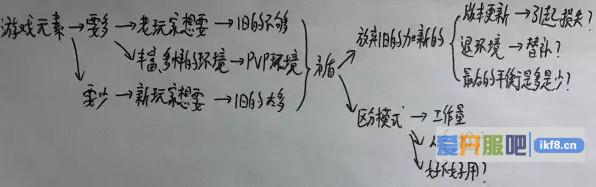 版本更新→引起损失?
游戏元素→要多→老玩家想要→旧的不够
放弃旧的加新的
退环境→替补?
丰富多样的环境→PVP环境
矛盾
最后的平衡是多少?
要少→新玩家想要→旧的太多
区分模式→工作量
爱开服吧
ikf8.cn
好不好用?